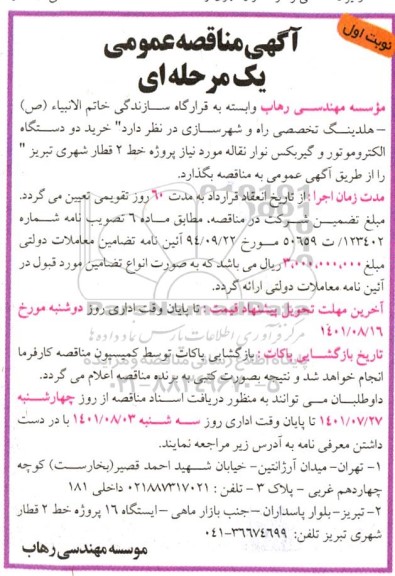 نوبت اول
آگهی مناقصه عمومی
یک مرحله ای
مؤسسه مهندسی رهاب وابسته به قرارگاه سازندگی خاتم الانبیاء (ص)
– هلدینگ تخصصی راه و شهرسازی در نظر دارد" خرید دو دستگاه
الکتروموتور و گیربکس نوار نقاله مورد نیاز پروژه خط ۲ قطار شهری تبریز "
را از طریق آگهی عمومی به مناقصه بگذارد.
مدت زمان اجرا : از تاریخ انعقاد قرارداد به مدت ۶۰ روز تقویمی تعیین می گردد.
مبلغ تضمین شرکت در مناقصه، مطابق ماده ۶ تصویب نامه شماره
۱۲۳۴۰۲/ ت ۵۰۶۵۹ مورخ ۹۴/۰۹/۲۲ آئین نامه تضامین معاملات دولتی
مبلغ ۳,۰۰۰,۰۰۰,۰۰۰ریال می باشد که به صورت انواع تضامین مورد قبول در
آئین نامه معاملات دولتی ارائه گردد.
آخرین مهلت تحویل پیشنهاد قیمت : تا پایان وقت اداری روز دوشنبه مورخ
۱۴۰۱/۰۸/۱۶
تاریخ بازگشایی پاکات : بازگشایی پاکات توسط کمیسیون مناقصه کارفرما
انجام خواهد شد و نتیجه بصورت کتبی به برنده مناقصه اعلام می گردد.
داوطلبان می توانند به منظور دریافت اسناد مناقصه از روز چهارشنبه
۱۴۰۱/۰۷/۲۷ تا پایان وقت اداری روز سه شنبه ۱۴۰۱/۰۸/۰۳ با در دست
داشتن معرفی نامه به آدرس زیر مراجعه نمایند.
۱- تهران- میدان آرژانتین- خیابان شهید احمد قصیر(بخارست) کوچه
چهاردهم غربی – پلاک ۳ – تلفن : ۰۲۱۸۸۷۳۱۷۰۲۱ داخلی ۱۸۱
۲- تبریز- بلوار پاسداران – جنب بازار ماهی – ایستگاه ۱۶ پروژه خط ۲ قطار
شهری تبریز تلفن: ۳۶۶۷۴۶۹۹-۰۴۱
موسسه مهندسی رهاب